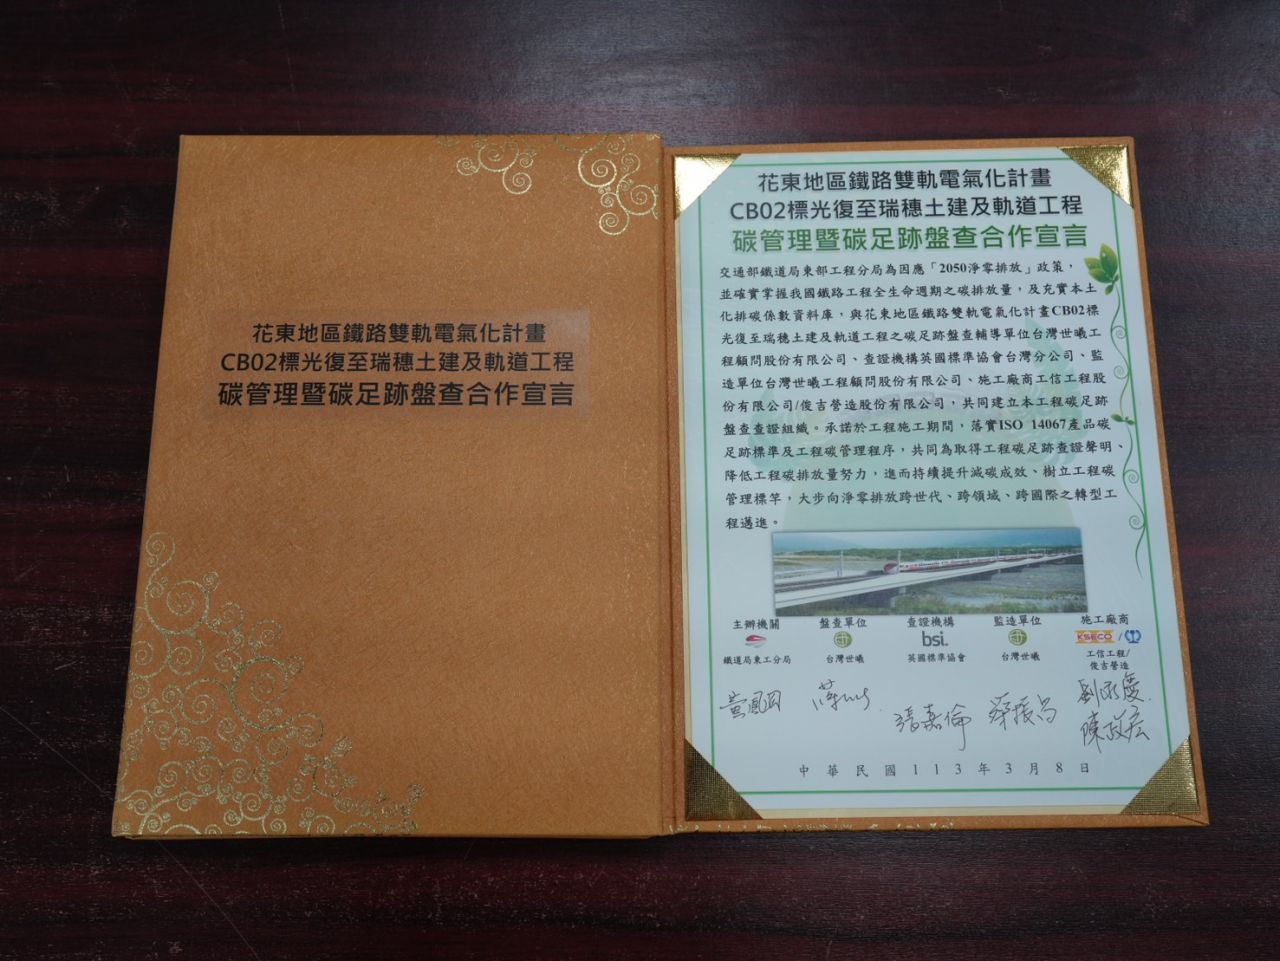 花東地區鐵路雙軌電氣化計畫
CB02標光復至瑞穗土建及軌道工程
碳管理暨碳足跡盤查合作宣言
花東地區鐵路雙軌電氣化計畫
CB02標光復至瑞穗土建及軌道工程
碳管理暨碳足跡盤查合作宣言
交通部鐵道局東部工程分局為因應「2050淨零排放」政策，
並確實掌握我國鐵路工程全生命週期之碳排放量，及充實本土
化排碳係數資料庫，與花東地區鐵路雙軌電氣化計畫CB02標
光復至瑞穗土建及軌道工程之碳足跡盤查輔導單位台灣世曦工
程顧問股份有限公司、查證機構英國標準協會台灣分公司、監
造單位台灣世曦工程顧問股份有限公司、施工廠商工信工程股
份有限公司/俊吉營造股份有限公司，共同建立本工程碳足跡
盤查查證組織。承諾於工程施工期間，落實ISO 14067產品碳
足跡標準及工程碳管理程序，共同為取得工程碳足跡查證聲明、
降低工程碳排放量努力，進而持續提升減碳成效、樹立工程碳
管理標竿，大步向淨零排放跨世代、跨領域、跨國際之轉型工
程邁進。
主辦機關 盤查單位 查證機構 監造單位 施工廠商
bsi. KSECO /
鐵道局東工分局 台灣世曦 英國標準協會 台灣世曦 工信工程/
俊吉營造
張嘉倫 蔡振昌
陳政宏
中華民國113年3月8日